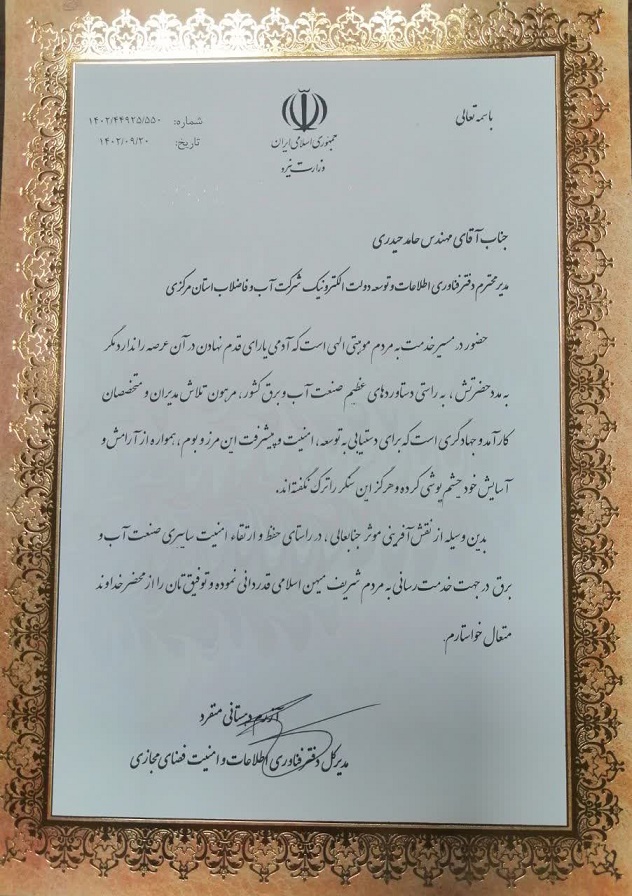 باسمه تعالی
شماره: ۱۴۰۲/۴۴۹۲۵/۵۵۰
تاریخ: ۱۴۰۲/۰۹/۲۰
جمهوری اسلامی ایران
وزارت نیرو
جناب آقای مهندس حامد حیدری
مدیر محترم دفتر فناوری اطلاعات و توسعه دولت الکترونیک شرکت آب و فاضلاب استان مرکزی
حضور در مسیر خدمت به مردم موهبتی الهی است که آدمی یارای قدم نهادن در آن عرصه را ندارد مگر
به مدد حضرتش ، به راستی دستاوردهای عظیم صنعت آب و برق کشور، مرهون تلاش مدیران و متخصصان
کارآمد و جهادگری است که برای دستیابی به توسعه، امنیت و پیشرفت این مرز و بوم ، همواره از آرامش و
آسایش خود چشم پوشی کرده و هرگز این سنگر را ترک نگفته اند.
بدین وسیله از نقش آفرینی موثر جنابعالی ، در راستای حفظ و ارتقاء امنیت سایبری صنعت آب و
برق در جهت خدمت رسانی به مردم شریف میهن اسلامی قدردانی نموده و توفیق تان را از محضر خداوند
متعال خواستارم.
دستانی منفرد
مدیرکل دفتر فناوری اطلاعات و امنیت فضای مجازی